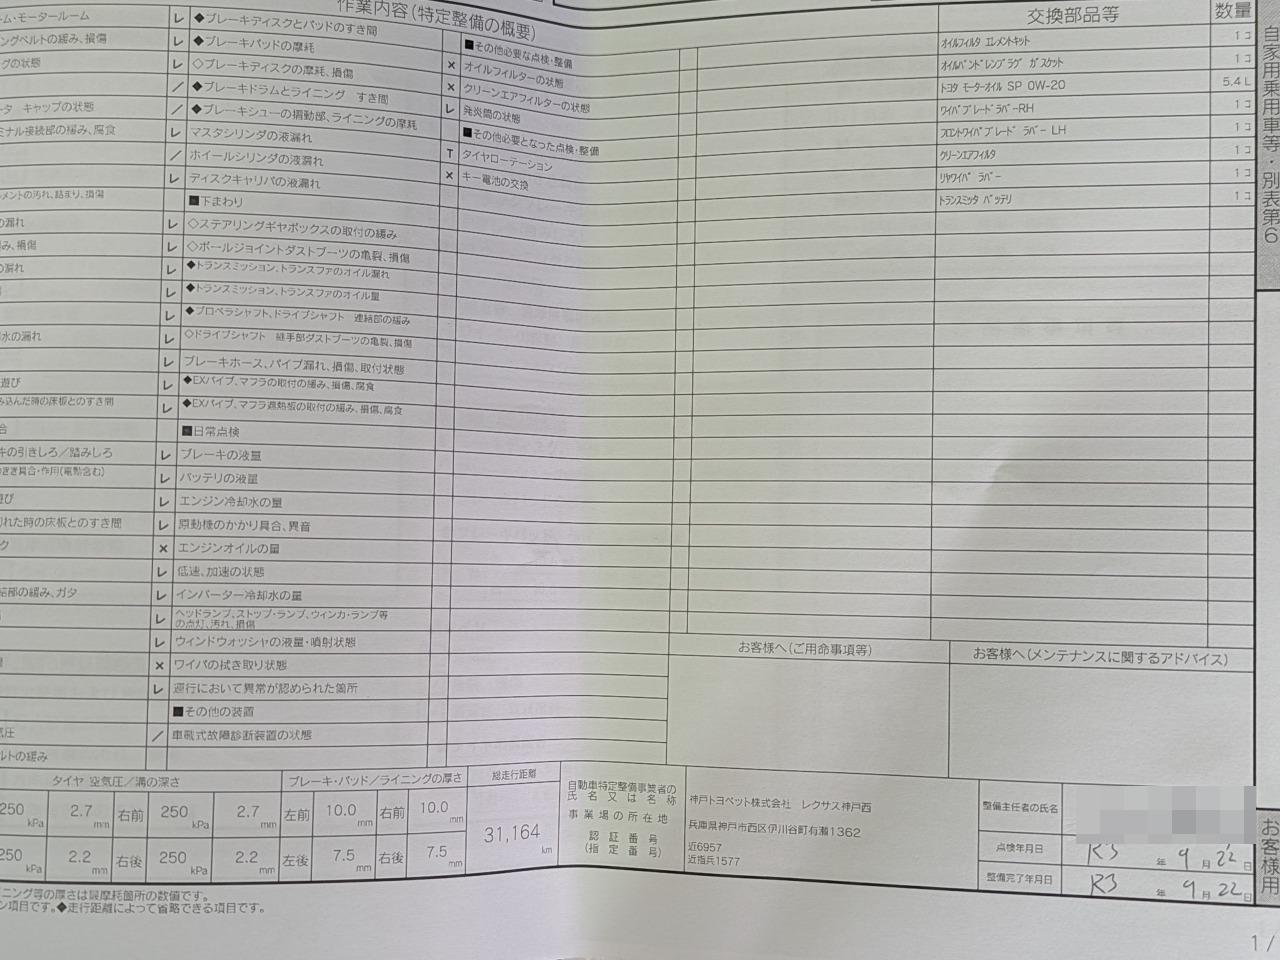 作業内容(特定整備の概要)
交換部品等
数量
ム・モータールーム
ングベルトの緩み、損傷
グの状態
ータ キャップの状態
ミナル接続部の緩み、腐食
メントの汚れ、詰まり、損傷
の漏れ
み、損傷
の漏れ
水の漏れ
遊び
み込んだ時の床板とのすき間
合
キの引きしろ/踏みしろ
きき具合・作用(電動含む)
遊び
切れた時の床板とのすき間
ク
結部の緩み、ガタ
気圧
ルトの緩み
レ ◆ブレーキディスクとパッドのすき間
レ ◆ブレーキパッドの摩耗
レ ◇ブレーキディスクの摩耗、損傷
/ ◆ブレーキドラムとライニング すき間
/ ◆ブレーキシューの摺動部、ライニングの摩耗
レ マスタシリンダの液漏れ
/ ホイールシリンダの液漏れ
レ ディスクキャリパの液漏れ
■下まわり
レ ◇ステアリングギヤボックスの取付の緩み
レ ◇ボールジョイントダストブーツの亀裂、損傷
レ ◆トランスミッション、トランスファのオイル漏れ
レ ◆トランスミッション、トランスファのオイル量
レ ◆プロペラシャフト、ドライブシャフト 連結部の緩み
レ ◇ドライブシャフト 継手部ダストブーツの亀裂、損傷
レ ブレーキホース、パイプ漏れ、損傷、取付状態
レ ◆EXパイプ、マフラの取付の緩み、損傷、腐食
レ ◆EXパイプ、マフラ遮熱板の取付の緩み、損傷、腐食
■日常点検
レ ブレーキの液量
レ バッテリの液量
レ エンジン冷却水の量
レ 原動機のかかり具合、異音
× エンジンオイルの量
レ 低速、加速の状態
レ インバーター冷却水の量
レ ヘッドランプ、ストップ・ランプ、ウィンカ・ランプ等
の点灯、汚れ、損傷
レ ウィンドウォッシャの液量・噴射状態
× ワイパの拭き取り状態
レ 運行において異常が認められた箇所
■その他の装置
/ 車載式故障診断装置の状態
■その他必要な点検・整備
× オイルフィルターの状態
× クリーンエアフィルターの状態
レ 発炎筒の状態
■その他必要となった点検・整備
T タイヤローテーション
× キー電池の交換
オイルフィルタ エレメントキット 1コ
オイルパンドレンプラグ ガスケット 1コ
トヨタ モーターオイル SP 0W-20 5.4L
ワイパブレードラバーRH 1コ
フロントワイパブレード ラバー LH 1コ
クリーンエアフィルタ 1コ
リヤワイパ ラバー 1コ
トランスミッタ バッテリ 1コ
自家用乗用車等・別表第6
お客様へ(ご用命事項等)
お客様へ(メンテナンスに関するアドバイス)
タイヤ 空気圧/溝の深さ
250 kPa 2.7 mm 右前 250 kPa 2.7 mm
250 kPa 2.2 mm 右後 250 kPa 2.2 mm
ブレーキ・パッド/ライニングの厚さ
左前 10.0 mm 右前 10.0 mm
左後 7.5 mm 右後 7.5 mm
総走行距離
31,164 km
自動車特定整備事業者の
氏名又は名称
事業場の所在地
認証番号
(指定番号)
神戸トヨペット株式会社 レクサス神戸西
兵庫県神戸市西区伊川谷町有瀬1362
近6957
近指兵1577
整備主任者の氏名
点検年月日 R3 年 9 月 22 日
整備完了年月日 R3 年 9 月 22 日
お客様用
ニング等の厚さは最摩耗箇所の数値です。
ン項目です。◆走行距離によって省略できる項目です。
1/